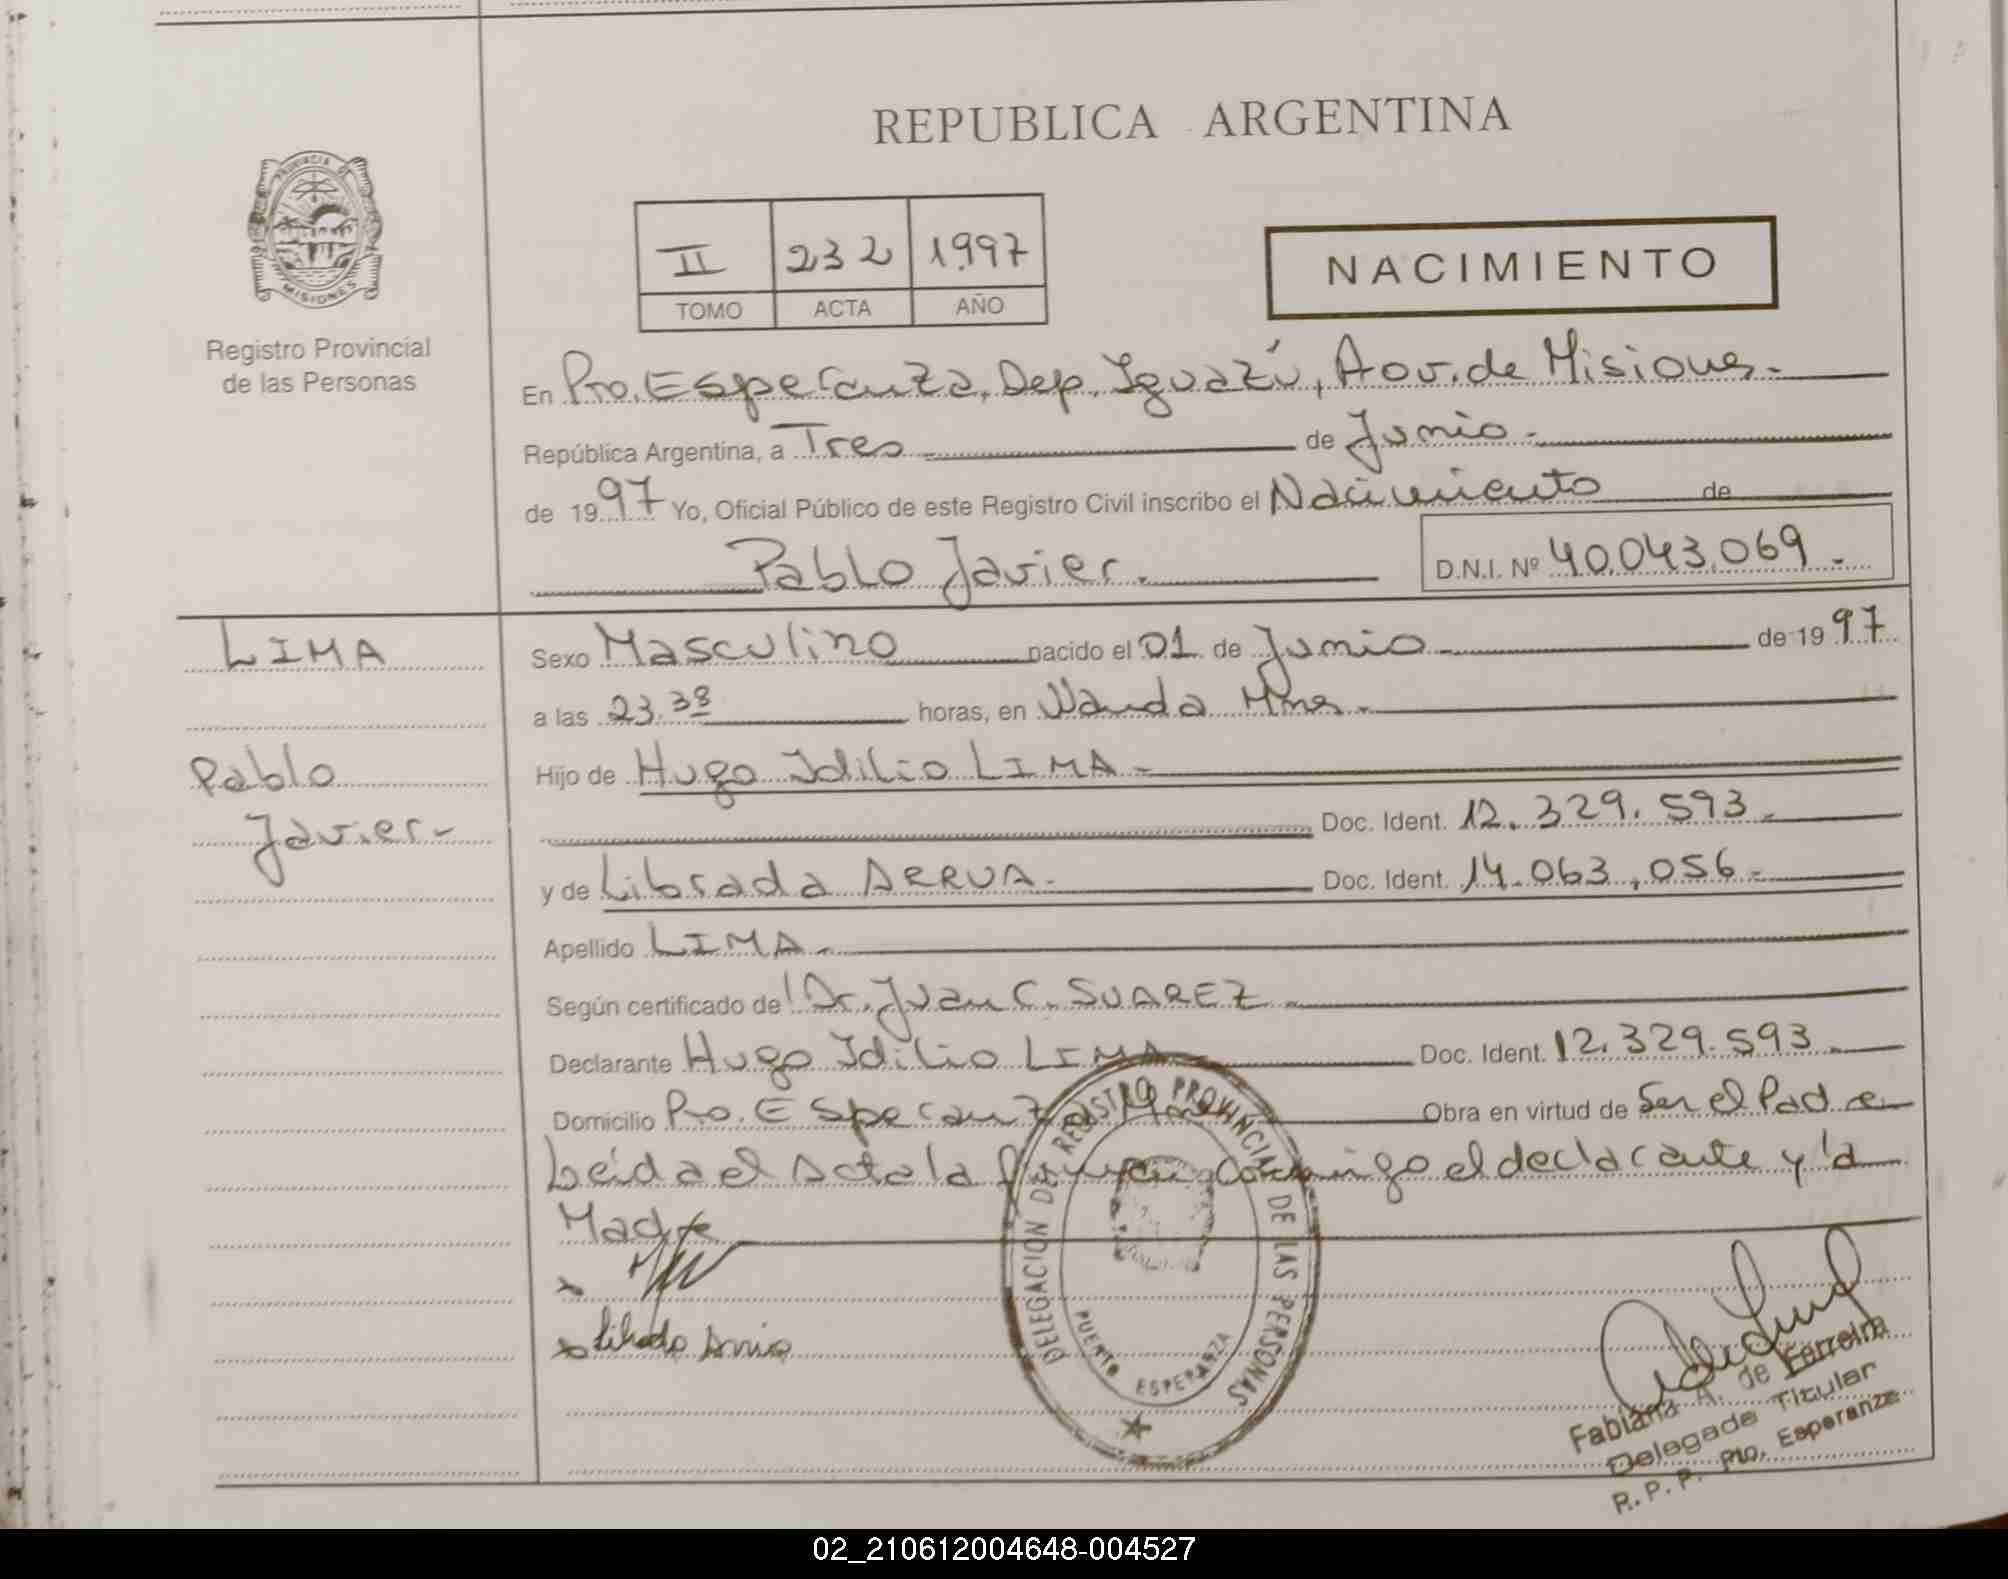 REPUBLICA ARGENTINA
PROVINCIA DE
MISIONES
Registro Provincial
de las Personas
II 232 1.997
TOMO ACTA AÑO
NACIMIENTO
En Pto. Esperanza, Dep. Iguazú, Prov. de Misiones.-
República Argentina, a Tres de Junio.-
de 1997 Yo, Oficial Público de este Registro Civil inscribo el Nacimiento de
Pablo Javier.
D.N.I. Nº 40.043.069.-
LIMA
Pablo
Javier-
Sexo Masculino nacido el 01 de Junio de 1997
a las 23.38 horas, en Wanda Mnes.
Hijo de Hugo Idilio LIMA-
Doc. Ident. 12.329.593.
y de Librada ARRUA. Doc. Ident. 14.063.056.-
Apellido LIMA.
Según certificado de Dr. Juan C. SUAREZ
Declarante Hugo Idilio LIMA Doc. Ident. 12.329.593.
Domicilio Pto. Esperanza Mnes Obra en virtud de Ser el Padre
Leída el Acta la firman conmigo el declarante y la
Madre
x
x Librada Arrua
DELEGACION DEL REGISTRO PROVINCIAL DE LAS PERSONAS
PUERTO ESPERANZA
Fabiana A. de Ferreira
Delegada Titular
R.P.P. Pto. Esperanza
02_210612004648-004527